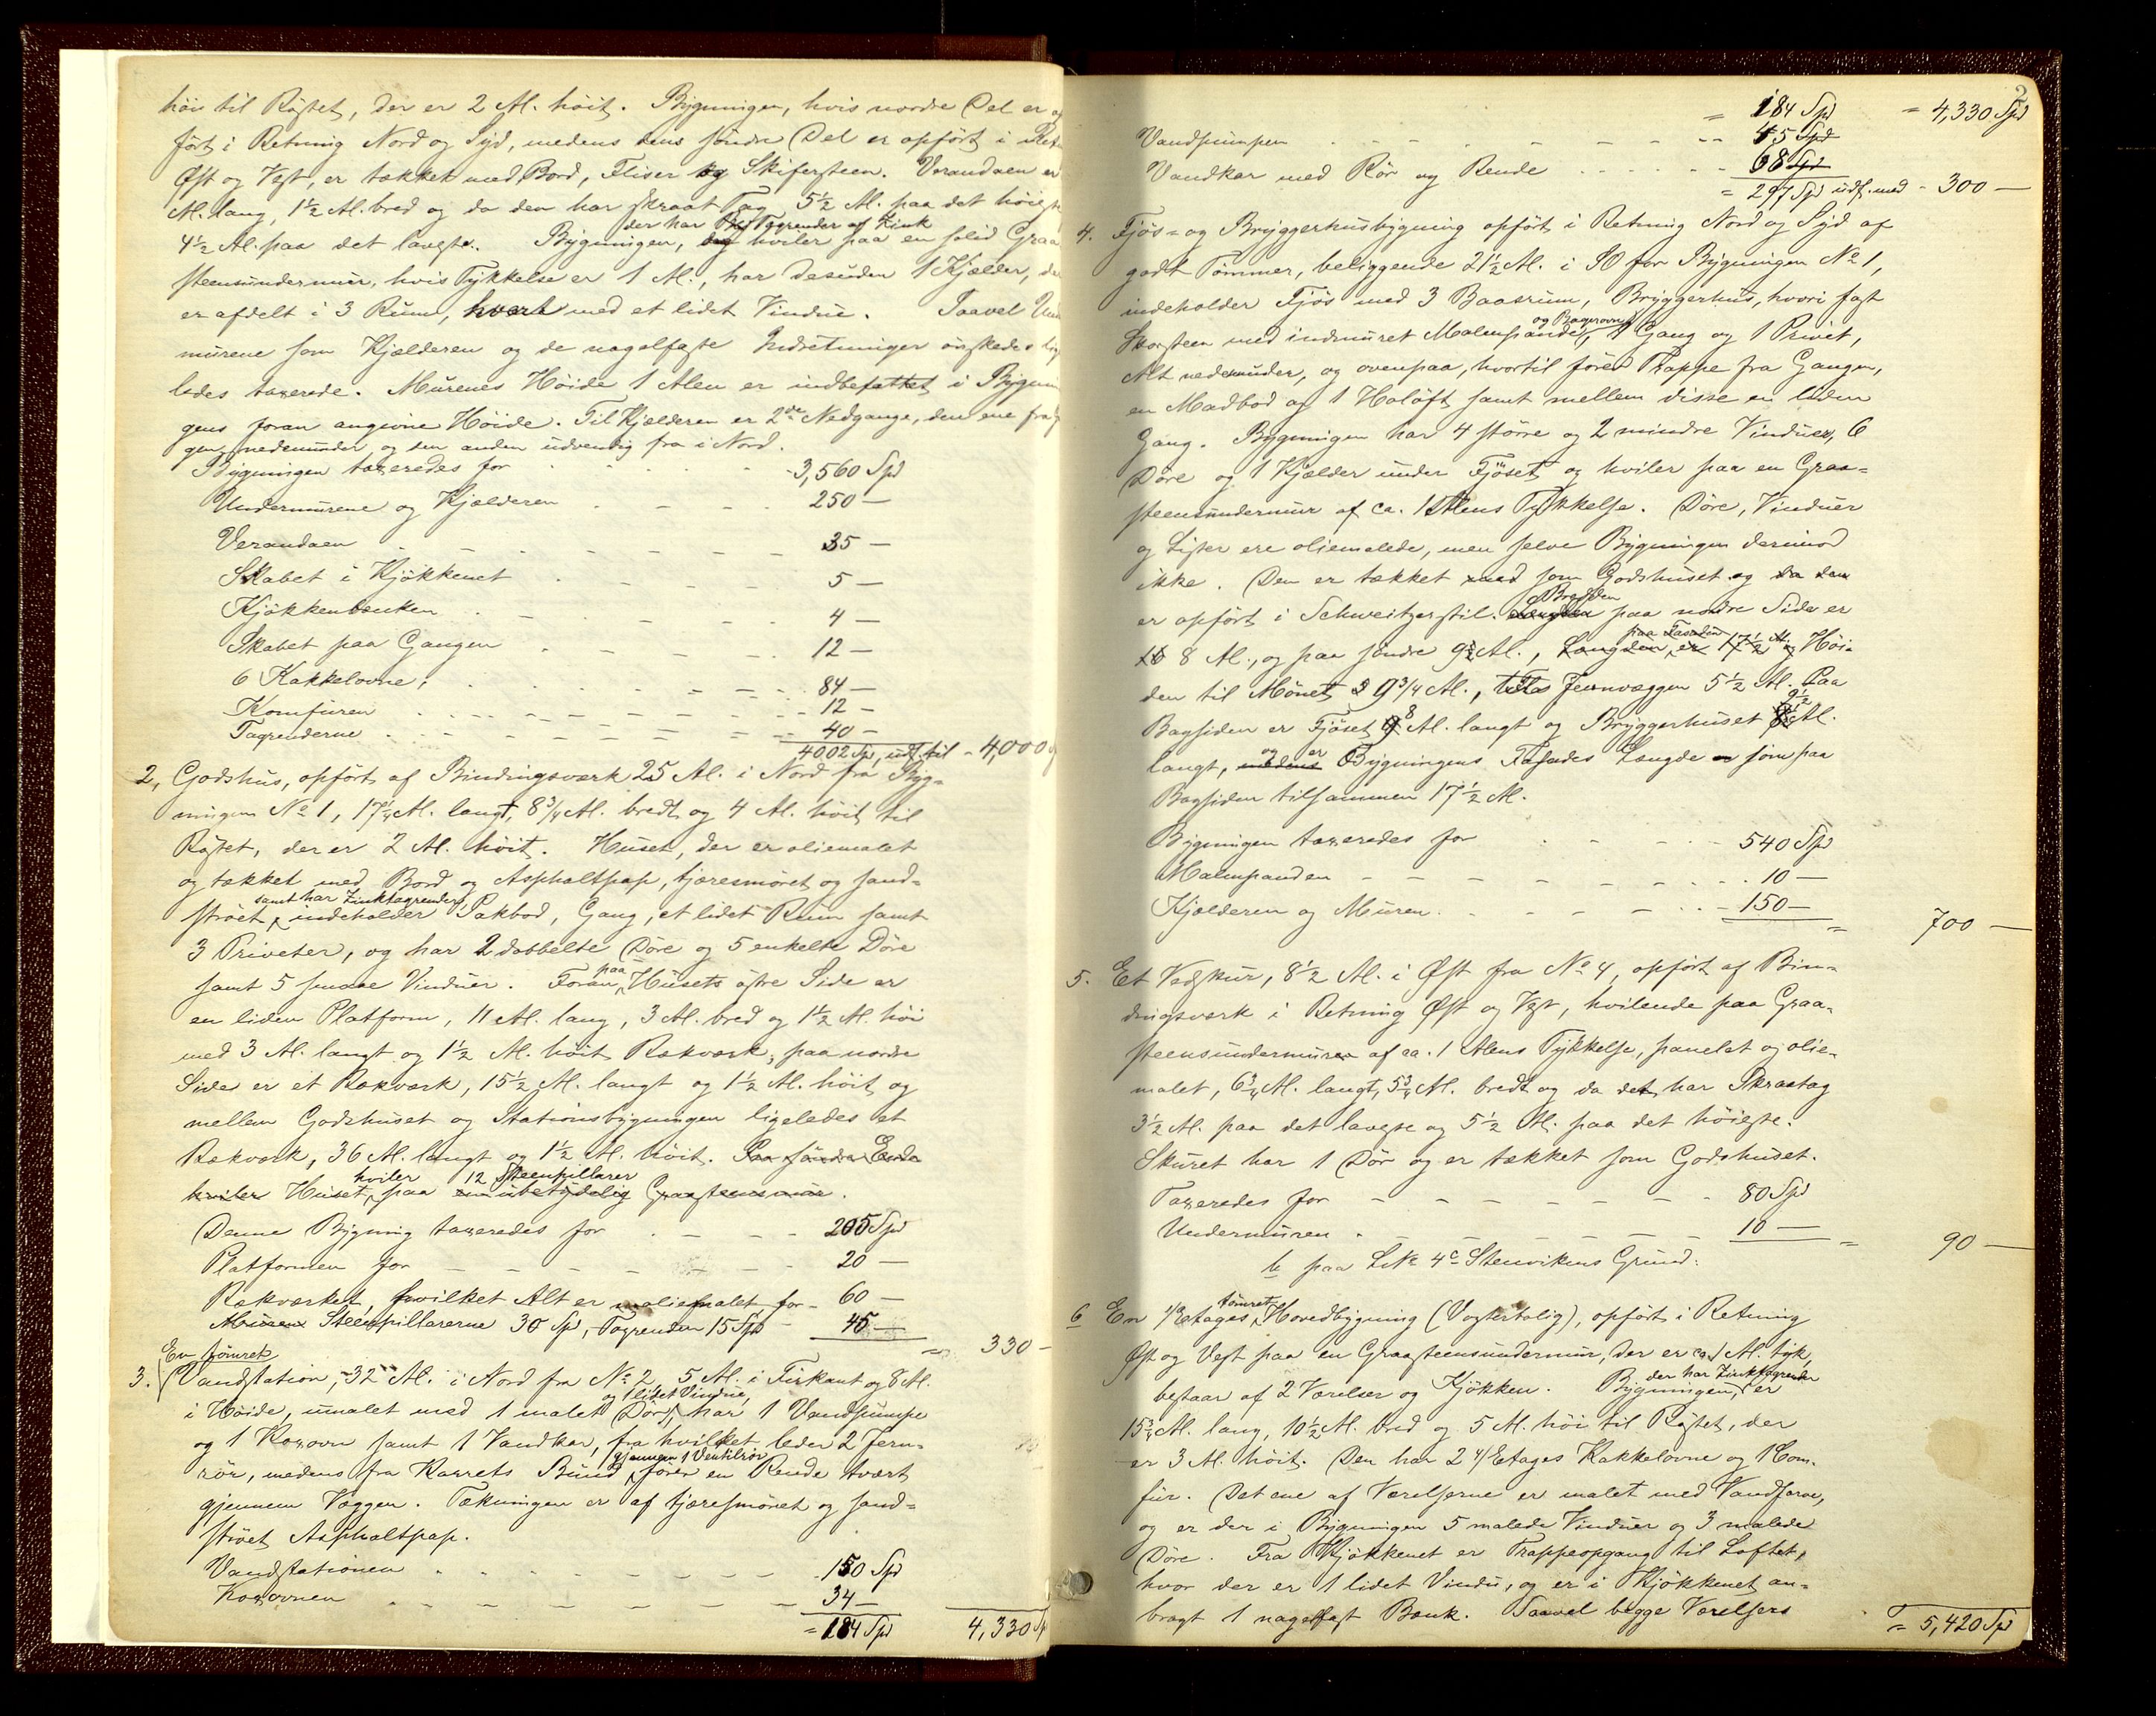 höi til Röstet, der er 2 Al. höit. Bygningen, hvis nordre Del er op
ført i Retning Nord og Syd, medens dens söndre Del er opført i Retn
Øst og Vest, er tækket med Bord, Fliser og Skifersteen. Verandaen er
Al. lang, 1½ Al. bred og da den har skraat Tag 5½ Al. paa det höieste
der har Tagrender af Zink
4½ Al. paa det laveste. Bygningen, hviler paa en solid Graa
steensundermuur, hvis Tykkelse er 1 Al., har desuden 1 Kjælder, de
er afdelt i 3 Rum, hvert med et lidet Vindue. Saavel Un
murene som Kjælderen og de nagelfaste Indretninger önskedes lig
ledes taxerede. Murenes Höide 1 Alen er indbefattet i Bygnin
gens foran angivne Höide. Til Kjælderen er 2de Nedgange, den ene fra
gen nedenunder og den anden udvendig fra i Nord.
Bygningen taxeredes for 3,560 Spd
Undermurene og Kjælderen 250 —
Verandaen 35 —
Skabet i Kjökkenet 5 —
Kjökkenbænken 4 —
Skabet paa Gangen 12 —
6 Kakkelovne 84 —
Komfuren 12 —
Tagrenderne 40 —
4002 Spd, udf. til = 4,000
2, Godshus, opført af Bindingsværk 25 Al. i Nord fra Byg-
ningen No 1, 17¼ Al. langt, 8¾ Al. bredt og 4 Al. höit til
Röstet, der er 2 Al. höit. Huset, der er oliemalet
og tækket med Bord og Asphaltpap, tjæresmöret og sand-
samt har Zinktagrender,
ströet, indeholder Pakbod, Gang, et lidet Rum samt
3 Priveter, og har 2 dobbelte Döre og 5 enkelte Döre
samt 5 smaae Vinduer. Foran paa Husets östre Side er
en liden Platform, 11 Al. lang, 3 Al. bred og 1½ Al. höi
med 3 Al. langt og 1½ Al. höit Rækværk, paa nordre
Side er et Rækværk, 15½ Al. langt og 1½ Al. höit og
mellem Godshuset og Stationsbygningen ligeledes et
Rækværk, 36 Al. langt og 1½ Al. höit. Paa söndre Ende
hviler 12 Steenpillarer
hviler Huset paa en ubetydelig Graasteensmuur.
Denne Bygning taxeredes for 205 Spd
Platformen for 20 —
Rækværket, hvilket Alt er oliemalet for 60 —
Muren Steenpillarerne 30 Spd, Tagrender 15 Spd 45 —
= 330 —
En tömret
3. Vandstation, 32 Al. i Nord fra No 2, 5 Al. i Firkant og 8 Al.
og 1 lidet Vindue,
i Höide, umalet med 1 malet Dör, har 1 Vandpumpe
og 1 Koxovn samt 1 Vandkar, fra hvilket leder 2 Jern-
gjennem 1 Ventilrör
rör, medens fra Karrets Bund förer en Rende tvært
gjennem Væggen. Tækningen er af tjæresmöret og sand-
ströet Asphaltpap.
Vandstationen 150 Spd
Koxovnen 34 —
= 184 Spd 4,330 Sp
2
= 184 Spd = 4,330 Spd
Vandpumpen 45 Spd
Vandkar med Rör og Rende 68 Spd
= 297 Spd udf. med = 300 —
4. Fjös- og Bryggerhusbygning opført i Retning Nord og Syd af
godt Tömmer, beliggende 21½ Al. i SO for Bygningen No 1,
indeholder Fjös med 3 Baasrum, Bryggerhus, hvori fast
og Bagerovn
Skorsteen med indmuret Malmpande, 1 Gang og 1 Privet,
Alt nedenunder, og ovenpaa, hvortil förer Trappe fra Gangen,
en Madbod og 1 Holöft samt mellem disse en liden
Gang. Bygningen har 4 större og 2 mindre Vinduer, 6
Döre og 1 Kjælder under Fjöset og hviler paa en Graa-
steensundermuur af ca. 1 Alens Tykkelse. Döre, Vinduer
og Lister ere oliemalede, men selve Bygningen derimod
ikke. Den er tækket med som Godshuset og da den
Bredden
er opført i Schweitzerstil. Længden paa nordre Side er
paa Facaden
8 Al., og paa söndre 9½ Al., Længden er 17½ Al. og Höi-
den til Mönet 9¾ Al., til Jernvæggen 5½ Al. Paa
8 9½
Bagsiden er Fjöset Al. langt og Bryggerhuset Al.
og er
langt, medens Bygningens Fasades Længde som paa
Bagsiden tilsammen 17½ Al.
Bygningen taxeredes for 540 Spd
Malmpanden 10 —
Kjælderen og Muren 150 —
= 700 —
5. Et Vedskur, 8½ Al. i Øst fra No 4, opført af Bin-
dingsværk i Retning Øst og Vest, hvilende paa Graa-
steensundermuren af ca. 1 Alens Tykkelse, panelet og olie-
malet, 6¾ Al. langt, 5¾ Al. bredt og da det har Skraatag
3½ Al. paa det laveste og 5½ Al. paa det höieste.
Skuret har 1 Dör og er tækket som Godshuset.
Taxeredes for 80 Spd
Undermuren 10 —
= 90 —
b paa LNo 4c Stenvikens Grund.
tömret
6 En 1 Etages Hovedbygning (Vogterbolig), opført i Retning
Øst og Vest paa en Graasteensundermuur, der er ca 1 Al. tyk,
der har Zinktagrender
bestaar af 2 Værelser og Kjökken. Bygningen, er
15¾ Al. lang, 10½ Al. bred og 5 Al. höi til Röstet, der
er 3 Al. höit. Den har 2 4/Etages Kakkelovne og 1 Com-
fur. Det ene af Værelserne er malet med Vandfarve,
og er der i Bygningen 5 malede Vinduer og 3 malede
Döre. Fra Kjökkenet er Trappeopgang til Loftet,
hvor der er 1 lidet Vindu, og er i Kjökkenet an-
bragt 1 nagelfast Bænk. Saavel begge Værelsers
= 5,420 Spd